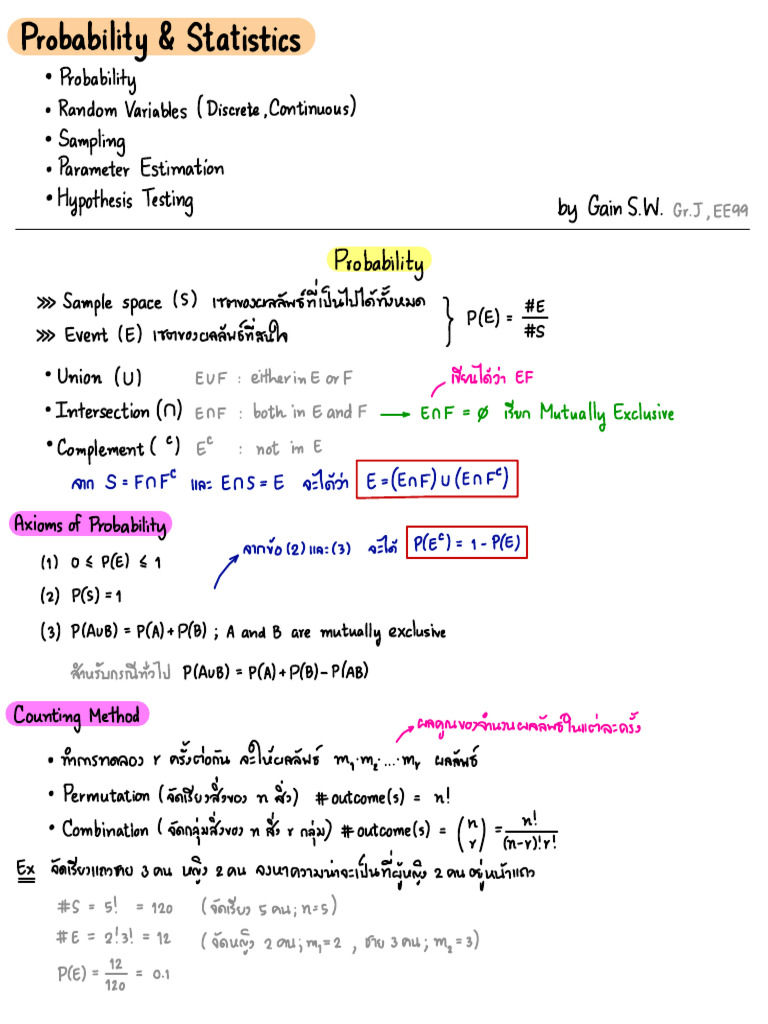 Probability & Statistics
• Probability
• Random Variables (Discrete, Continuous)
• Sampling
• Parameter Estimation
• Hypothesis Testing
by Gain S.W. Gr.J, EE99
Probability
>>> Sample space (S) เซตของผลลัพธ์ที่เป็นไปได้ทั้งหมด
>>> Event (E) เซตของผลลัพธ์ที่สนใจ
P(E) = #E / #S
• Union (∪) E∪F : either in E or F
เขียนได้ว่า EF
• Intersection (∩) E∩F : both in E and F → E∩F = ∅ เรียก Mutually Exclusive
• Complement ( ᶜ) Eᶜ : not in E
จาก S = F∩Fᶜ และ E∩S = E จะได้ว่า E = (E∩F) ∪ (E∩Fᶜ)
Axioms of Probability
(1) 0 ≤ P(E) ≤ 1
จากข้อ (2) และ (3) จะได้ P(Eᶜ) = 1 - P(E)
(2) P(S) = 1
(3) P(A∪B) = P(A) + P(B) ; A and B are mutually exclusive
สำหรับกรณีทั่วไป P(A∪B) = P(A) + P(B) - P(AB)
Counting Method
ผลคูณของจำนวนผลลัพธ์ในแต่ละครั้ง
• ทำการทดลอง r ครั้งต่อกัน จะให้ผลลัพธ์ m₁·m₂·...·mᵣ ผลลัพธ์
• Permutation (จัดเรียงสิ่งของ n สิ่ง) #outcome(s) = n!
• Combination (จัดกลุ่มสิ่งของ n สิ่ง r กลุ่ม) #outcome(s) = (n r) = n! / (n-r)!r!
Ex จัดเรียงแถวชาย 3 คน หญิง 2 คน จงหาความน่าจะเป็นที่ผู้หญิง 2 คนอยู่หน้าแถว
#S = 5! = 120 (จัดเรียง 5 คน; n=5)
#E = 2!3! = 12 (จัดหญิง 2 คน; m₁=2 , ชาย 3 คน; m₂=3)
P(E) = 12 / 120 = 0.1